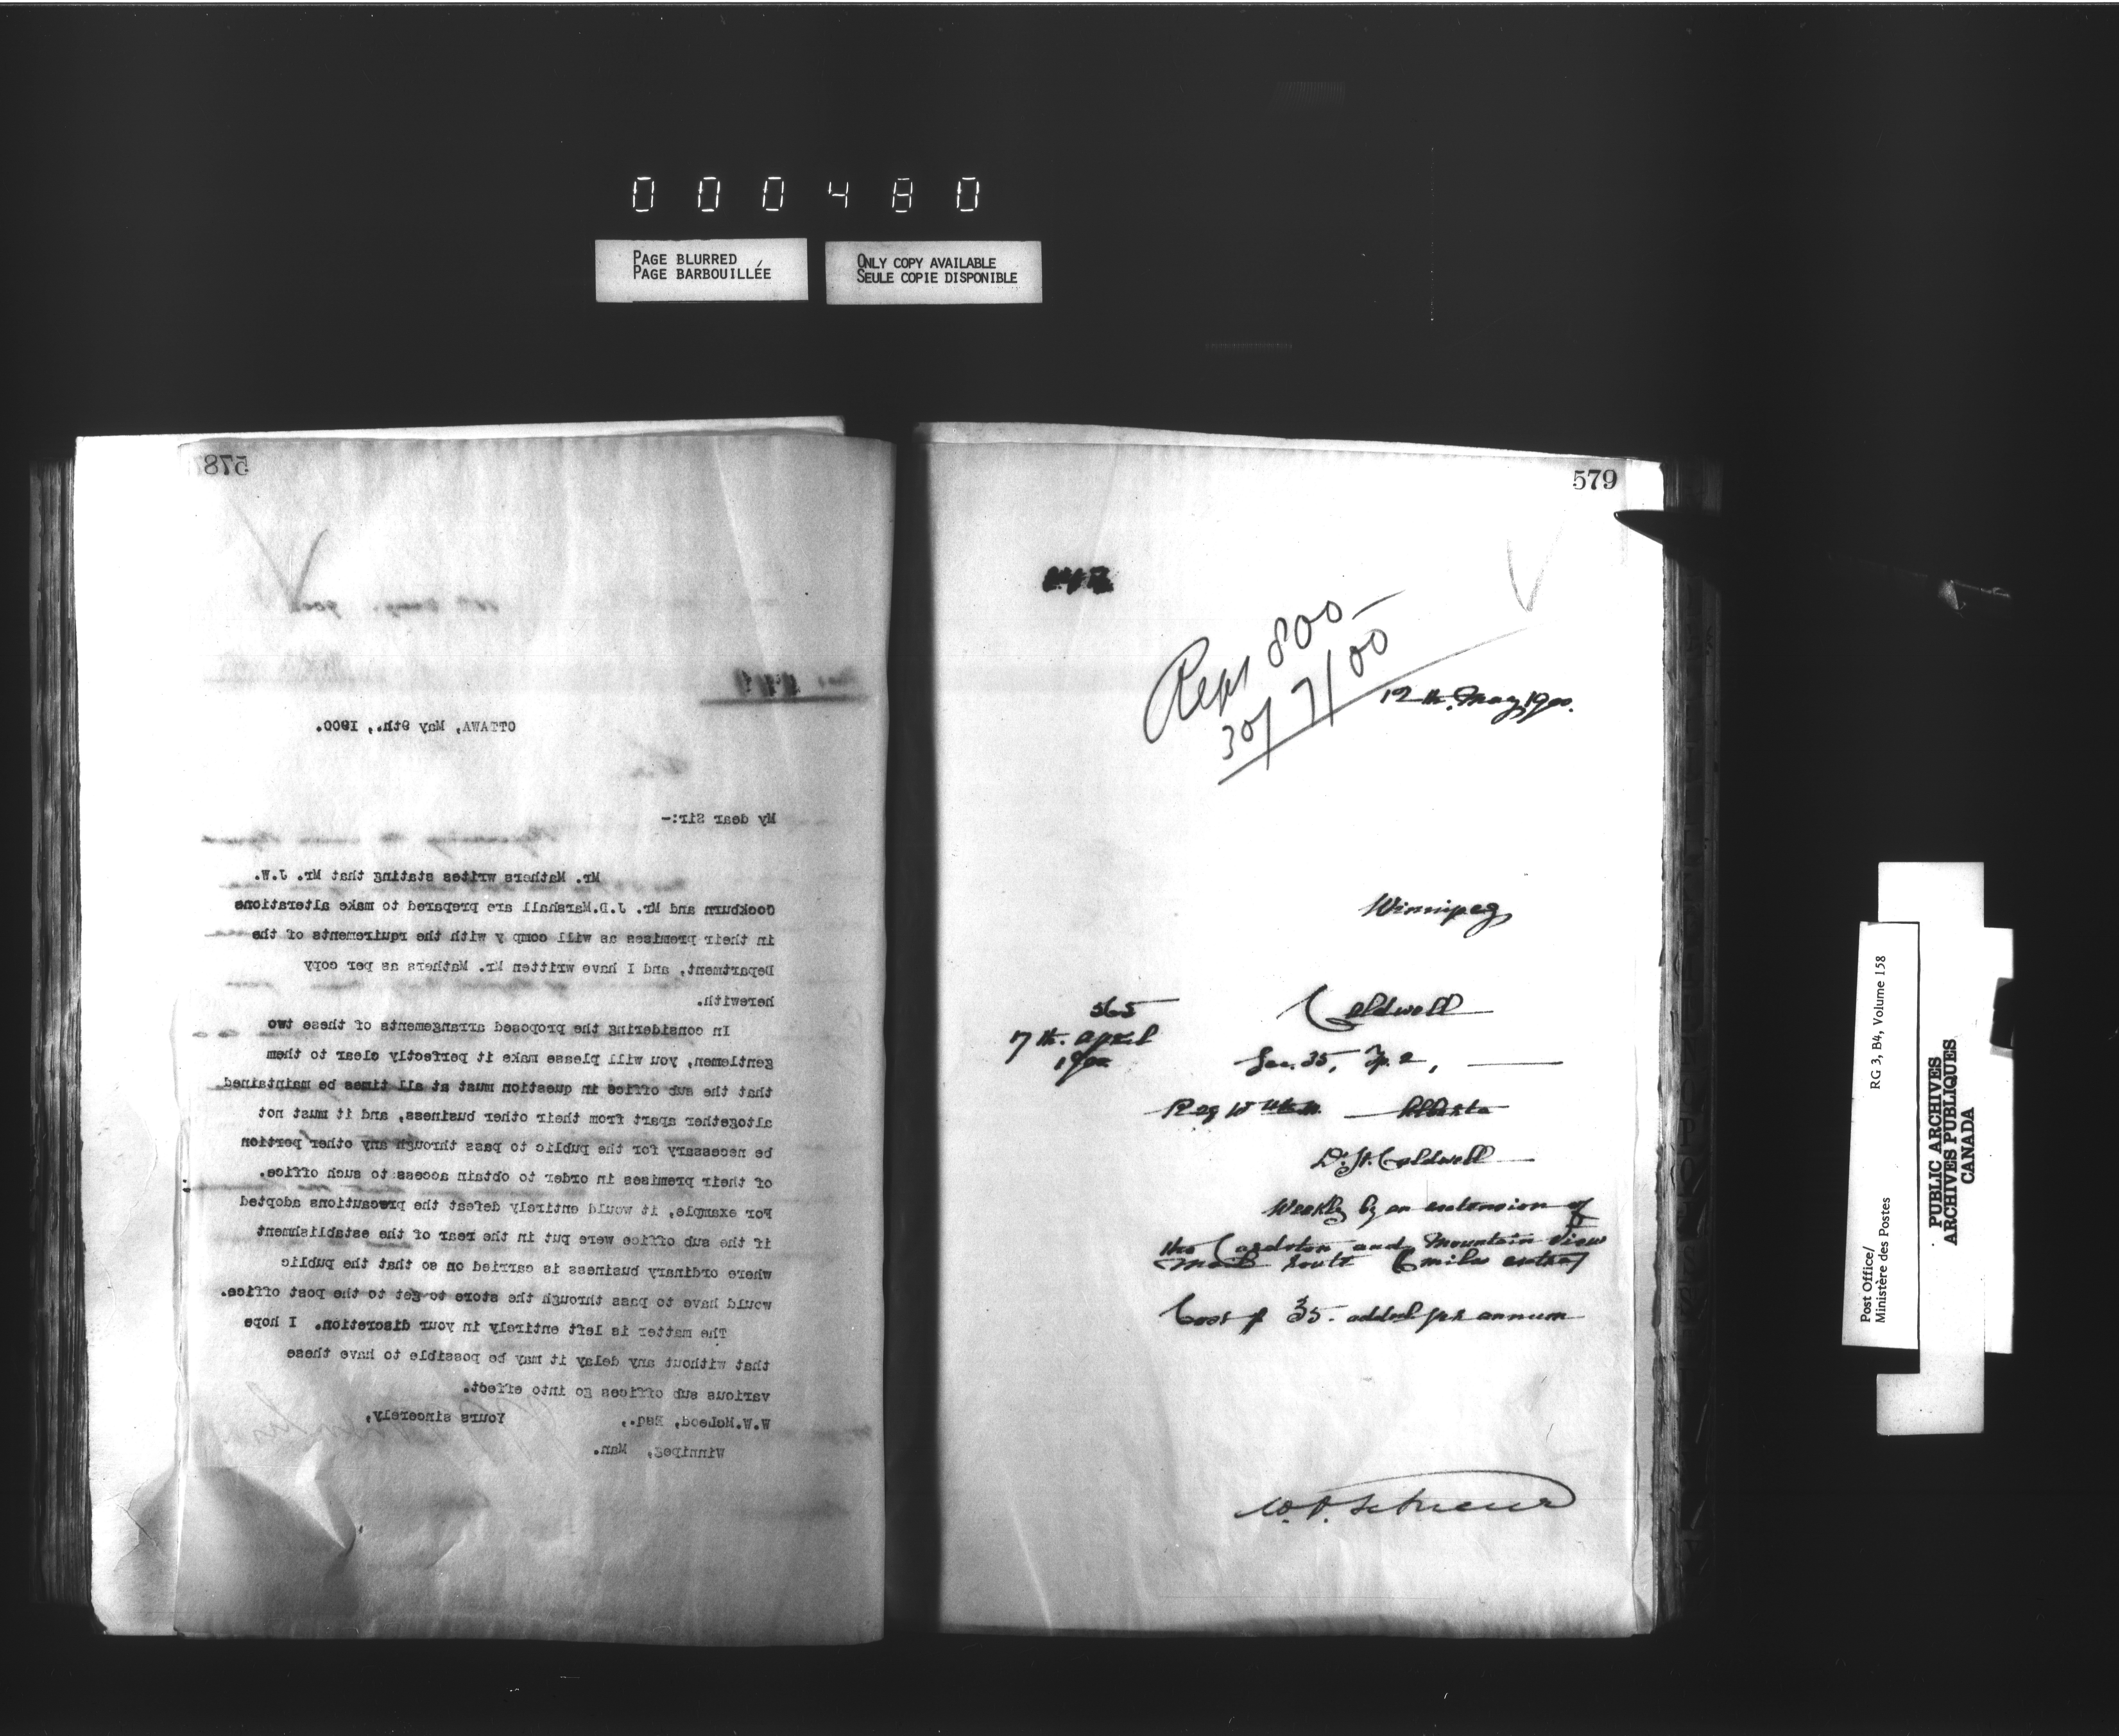 000480
PAGE BLURRED
PAGE BARBOUILLÉE
ONLY COPY AVAILABLE
SEULE COPIE DISPONIBLE
578
OTTAWA, May 9th., 1900.
My dear Sir:-
Mr. Mathers writes stating that Mr. J.W.
Cockburn and Mr. J.D.Marshall are prepared to make alterations
in their premises as will comp y with the rquirements of the
Department, and I have written Mr. Mathers as per copy
herewith.
In considering the proposed arrangements of these two
gentlemen, you will please make it perfectly clear to them
that the sub office in question must at all times be maintained
altogether apart from their other business, and it must not
be necessary for the public to pass through any other portion
of their premises in order to obtain access to such office.
For example, it would entirely defeat the precautions adopted
if the sub office were put in the rear of the establishment
where ordinary business is carried on so that the public
would have to pass through the store to get to the post office.
The matter is left entirely in your discretion. I hope
that without any delay it may be possible to have these
various sub offices go into effect.
Yours sincerely,
W.W.McLeod, Esq.,
Winnipeg, Man.
579
800
30/7/00
12th. May, 1900.
Winnipeg
565
7th. April
1900
Caldwell
Sec. 35, Tp. 2,
Alberta
Caldwell
Weekly by an extension of
the Cardston and Mountain View
Mail route 6 miles extra
Cost $ 35. added per annum
Post Office/
Ministère des Postes
RG 3, B4, Volume 158
PUBLIC ARCHIVES
ARCHIVES PUBLIQUES
CANADA